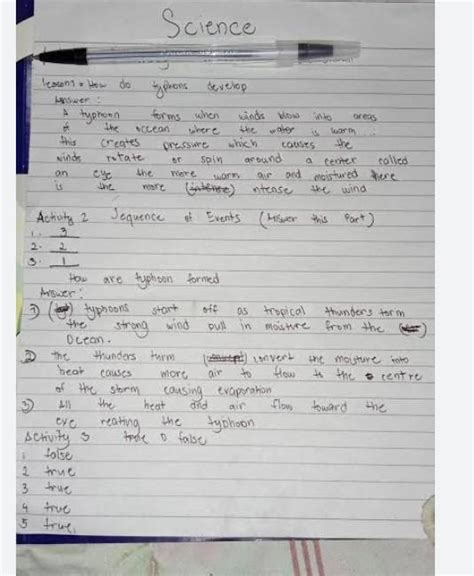 Science
lesson 1 = How do typhons develop
Answer:
A typhoon forms when winds blow into areas
of the occean where the water is warm...
this creates pressure which causes the
winds rotate or spin around a center called
an eye the more warm air and moistured there
is the more (intence) ntense the wind
Activity 2 Sequence of Events (Answer this Part)
1. 3
2. 2
3. 1
How are typhoon formed
Answer:
1) typhoons start off as tropical thunders torm
the strong wind pull in moisture from the
Ocean.
2) the thunders turm convert the moisture into
heat causes more air to flow to the centre
of the storm causing evaporation
3) All the heat and air flow toward the
eye reating the typhoon
Activity 3 true o false
1 false
2 true
3 true
4 true
5 true